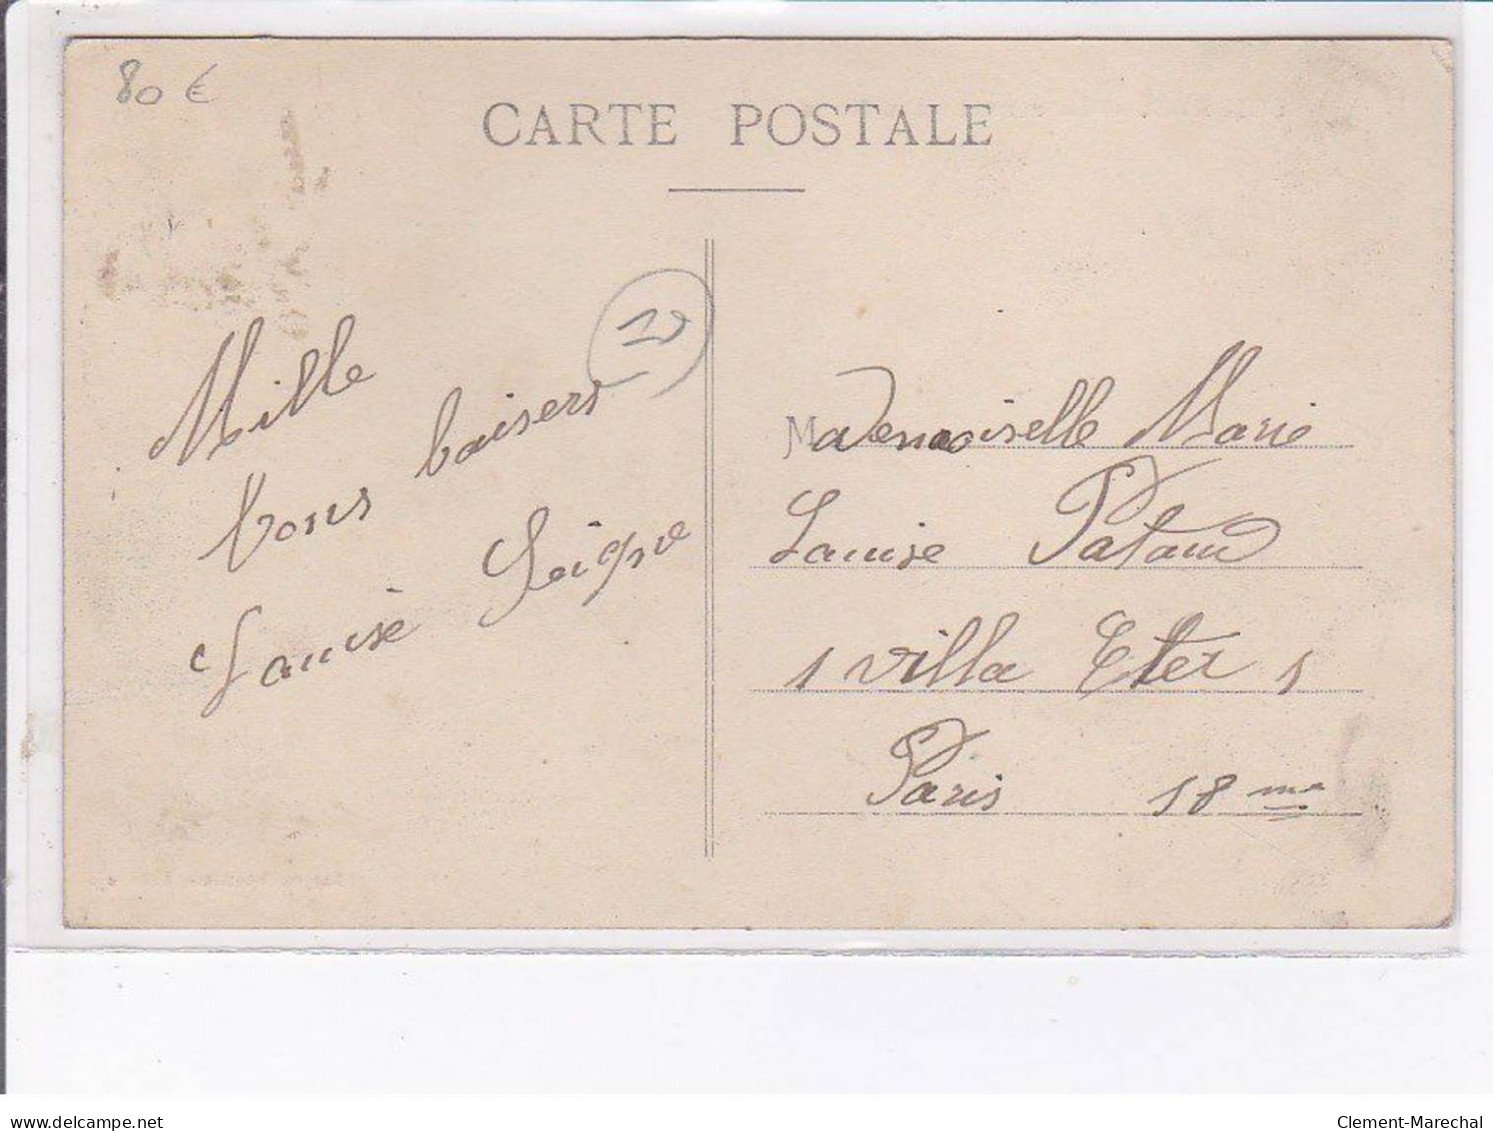 80 €
CARTE POSTALE
Mille
bons baisers
Louise
Mademoiselle Marie
Louise Pataud
1 villa Etex 1
Paris 18 me
delcampe.net
Clement-Marechal